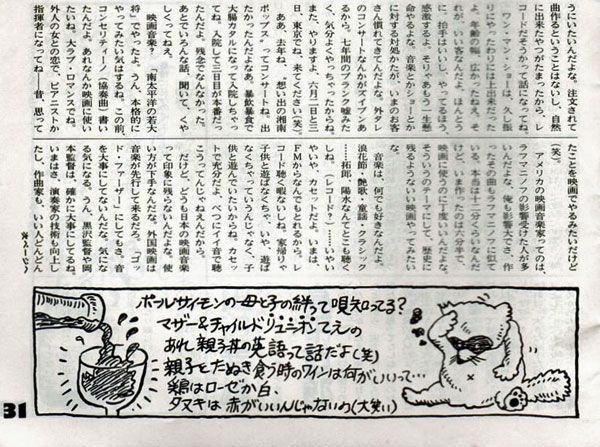 うにいたいんだよな。注文されて
曲作るということはないし、自然
に出来たやつがたまったから、レ
コードだそうかって話になってね。
ワン・マン・ショーは、久し振
りにやったわりには上出来だった
よ。年齢の幅、広かったねえ。そ
れが、いい客なんだよ。ほんとう
に、拍手はいいし、やってるほう、
感激するよ、そりゃあもう一生懸
命やるよな。音楽とかショーとか
に対する対処かたが、いまのお客
さん慣れてきてんだな。外タレ
のコンサートなんかがスイブンあ
るから。七年間のブランク嘘みた
く、気分よくやっちゃったからね。
また、やりますよ。六月二日と三
日、東京でね、来てください(笑)。
ああ、去年ね、〝想い出の湘南
ポップス〟ってコンサートね。出
たかったんだよなあ。暴飲暴食で
大腸カタルになって入院しちゃっ
てね。入院して三日目が本番だっ
たんだよ。残念でなんなかった。
あとでいろんな話、聞いて、くや
しくってねえ。
映画音楽?『南太平洋の若大
将』でやったよ。うん、本格的に
やってみたい気はするね。この前、
コンセルティーノ(協奏曲)書い
たんだよ。あれなんか映画に使い
たいね。大ラブ・ロマンスでね。
外人の女との恋で、ピアニストか
指揮者になってね──昔、思って
たことを映画でやるみたいだけど
(笑)。
アメリカの映画音楽家ってのは、
ラフマニノフの影響受けた人が多
いんだよな。俺も影響大でさ、作
ったその曲もラフマニノフに似て
いる。本当は十二分くらいなんだ
けど、いま作ったのは六分半で、
映画に使うのに丁度いいくらい。
そういうのテーマにして、歴史に
残るようないい映画やってみたい
ね。
音楽は、何でも好きなんだよ。
浪花節・艶歌・童謡・クラシック
……拓郎、陽水なんてとこも聴い
し。(レコード?)……いや
やいや、カセットだよ。いまは、
FMからなんでもとれるから。レ
コード聴く暇ないしね。家帰りゃ
子供と遊ばなくちゃ。いや、遊ば
なくちゃっていうんじゃなく、子
供と遊んでいたいからね。カセッ
トで充分だよ。べつにイイ音で聴
こうってんじゃねえんだから。
だけど、どうも日本の映画音楽
って印象に残らないんだよな。使
い方が下手なんだな。外国映画は
音楽が先行して来るだろ。『ゴッ
ド・ファーザー』にしてもさ。音
を大事にしてないんだな。気にな
る気になる。うん、黒沢監督や岡
本監督は、確かに大事にしてるね。
いまはさ、演奏家の技術も向上し
たし、作曲家も、いい人どんどん
ポールサイモンの母と子の絆って唄知ってる?
マザー&チャイルドリュニオンてえの
あれ 親子丼の英語って話だよ(笑)
親子とたぬき食う時のワインは何がいいって…
鶏はローゼか白、
タヌキは赤がいいんじゃないの(大笑い)
31